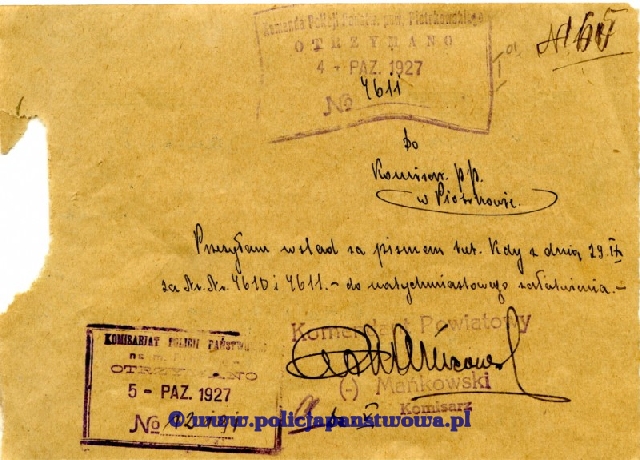 Komenda Policji Państw. pow. Piotrkowskiego
OTRZYMANO
4 - PAŹ. 1927
№ 4611
Do
Komisar. P.P.
w Piotrkowie.
Przesyłam wślad za pismem tut. Kdy z dnia 29.IX
za Nr. Nr. 4610 i 4611. - do natychmiastowego załatwienia. -
Komendant Powiatowy
(-) Mańkowski
Komisarz
KOMISARIAT POLICJI PAŃSTWOWEJ
na m.
OTRZYMANO
5 - PAŹ. 1927
№
© www.policjapanstwowa.pl